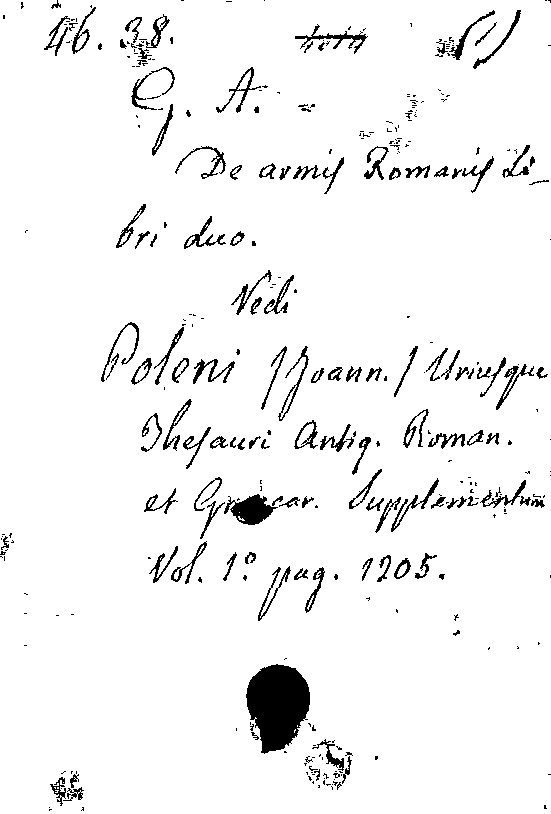 46. 38.
G. A. =
De armis Romanis Li-
bri duo.
Vedi
Poleni /Joann./ Utriusque
Thesauri Antiq. Roman.
et Graecar. Supplementum
Vol. 1º pag. 1205.